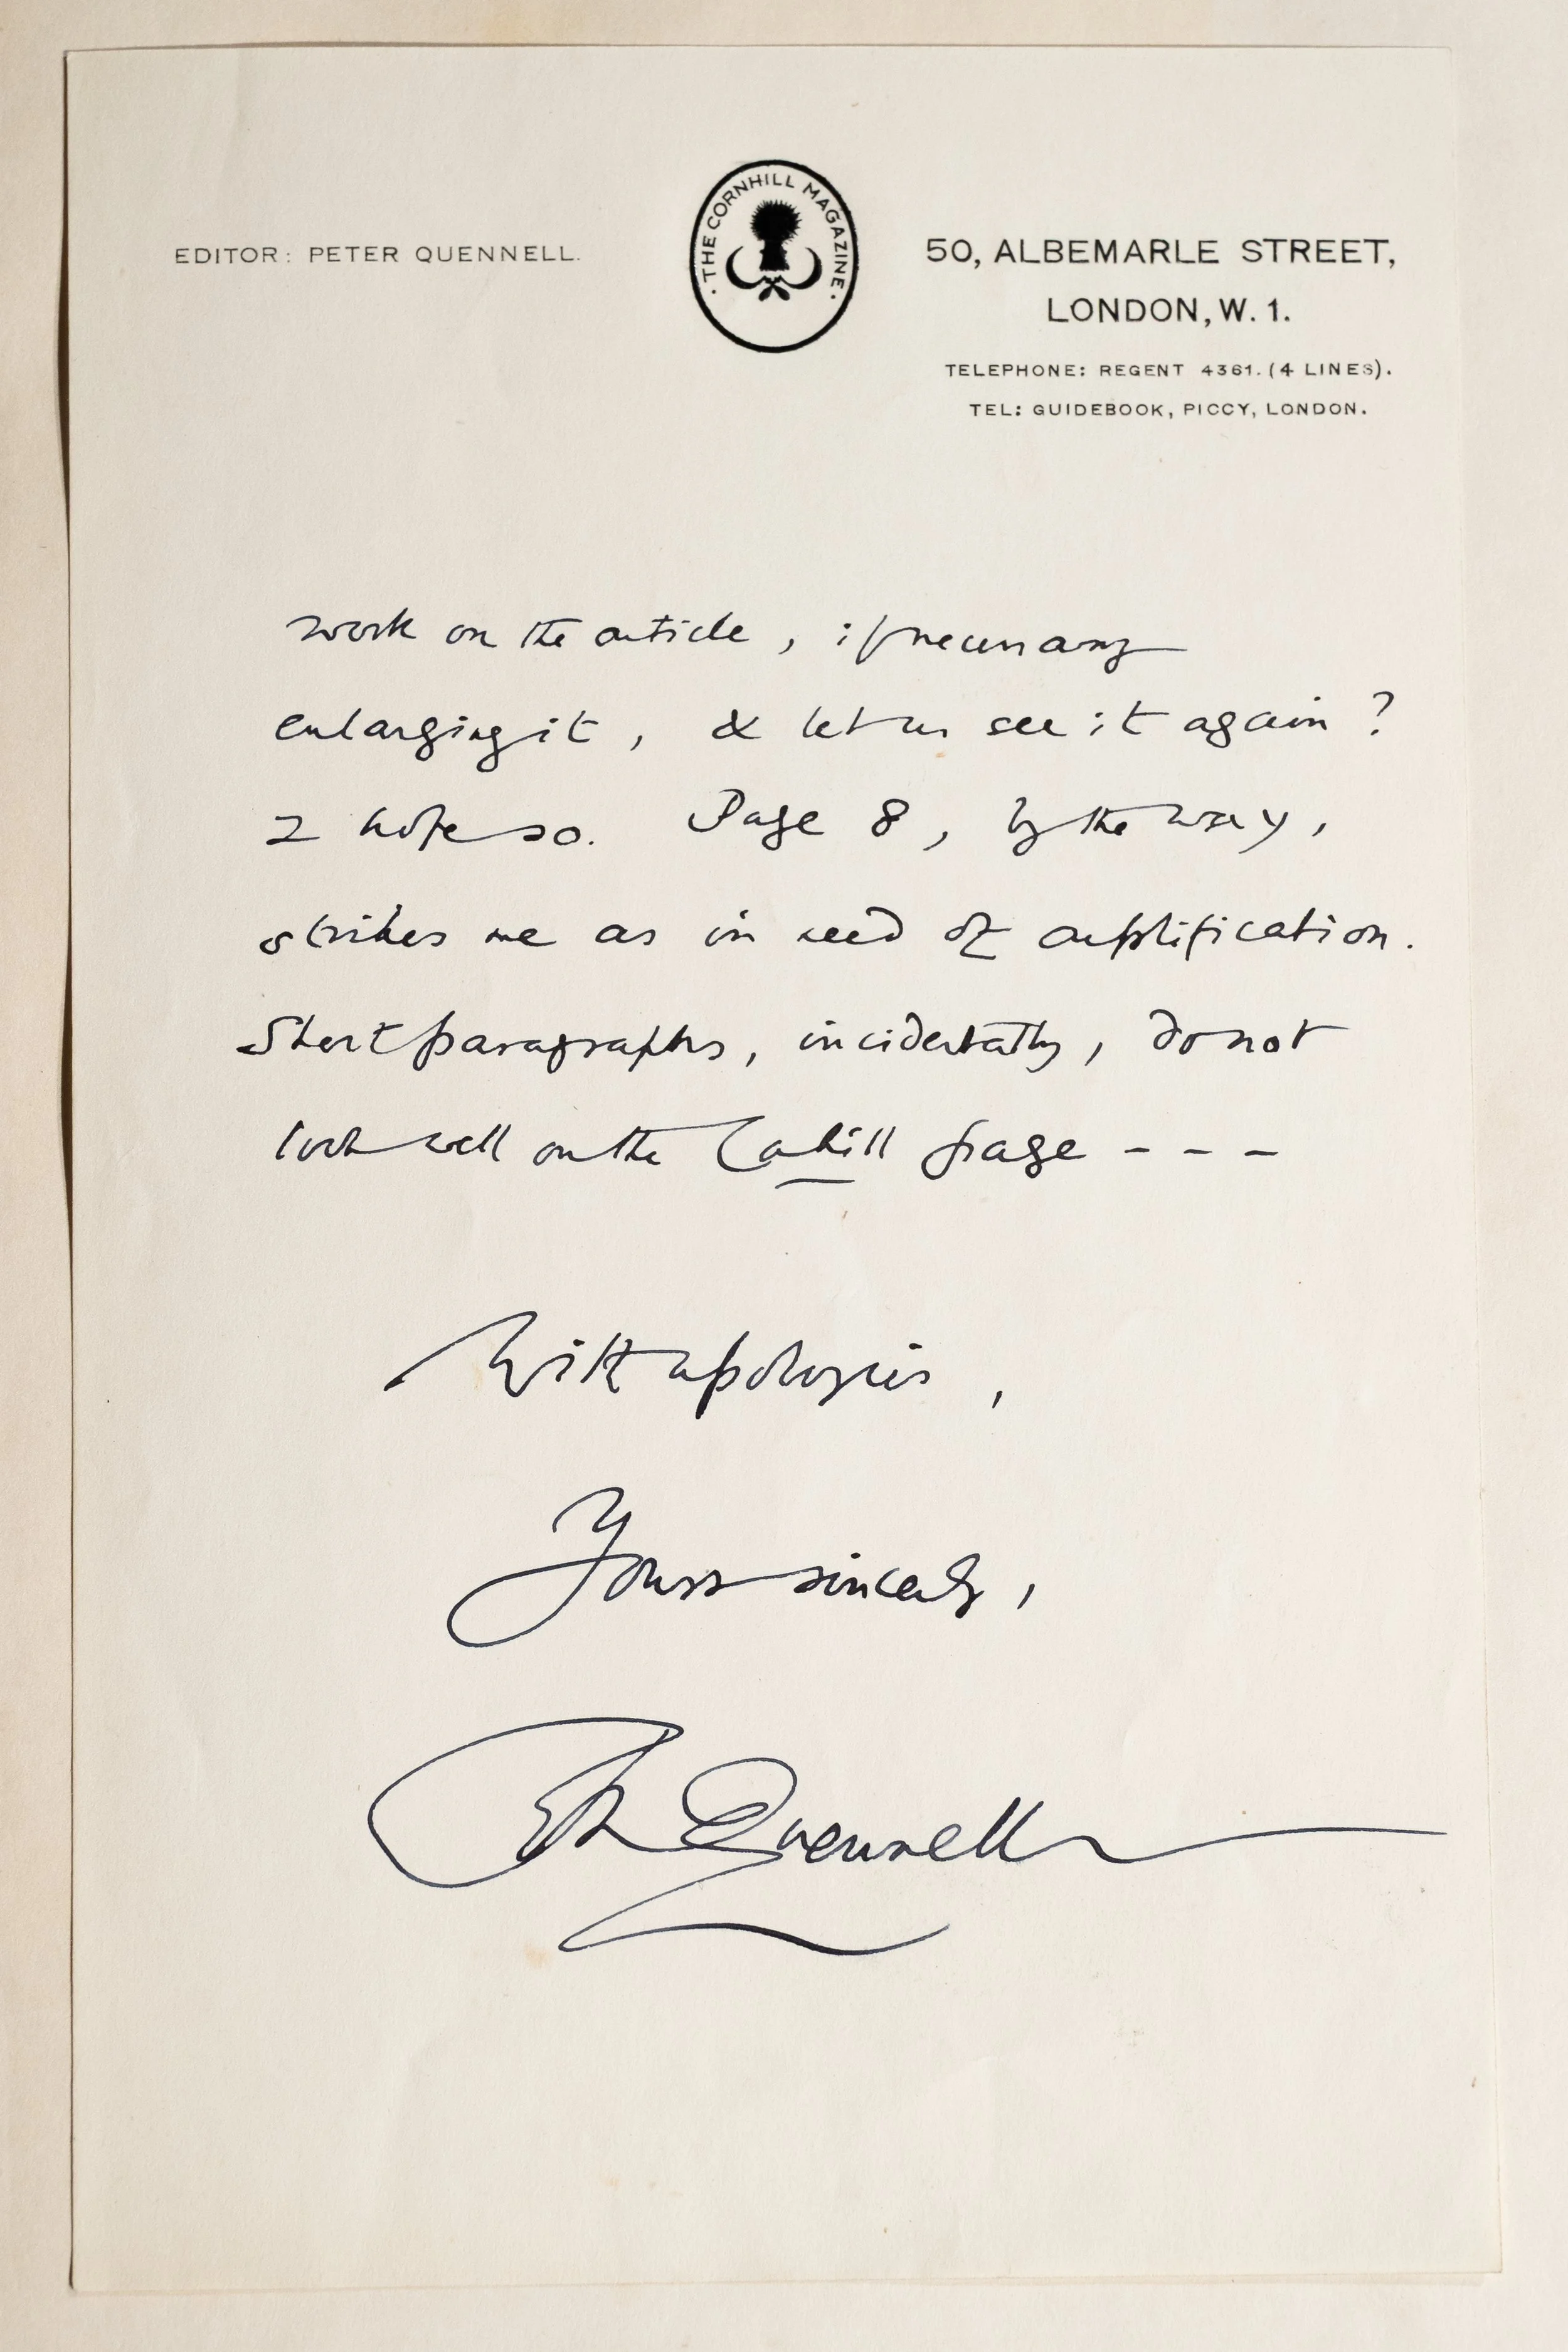 EDITOR: PETER QUENNELL.
· THE CORNHILL MAGAZINE ·
50, ALBEMARLE STREET,
LONDON, W. 1.
TELEPHONE: REGENT 4361. (4 LINES).
TEL: GUIDEBOOK, PICCY, LONDON.
work on the article, if necessary
enlarging it, & let us see it again?
I hope so. Page 8, by the way,
strikes me as in need of amplification.
Short paragraphs, incidentally, do not
look well on the Cornhill page - - -
With apologies,
Yours sincerely,
Peter Quennell